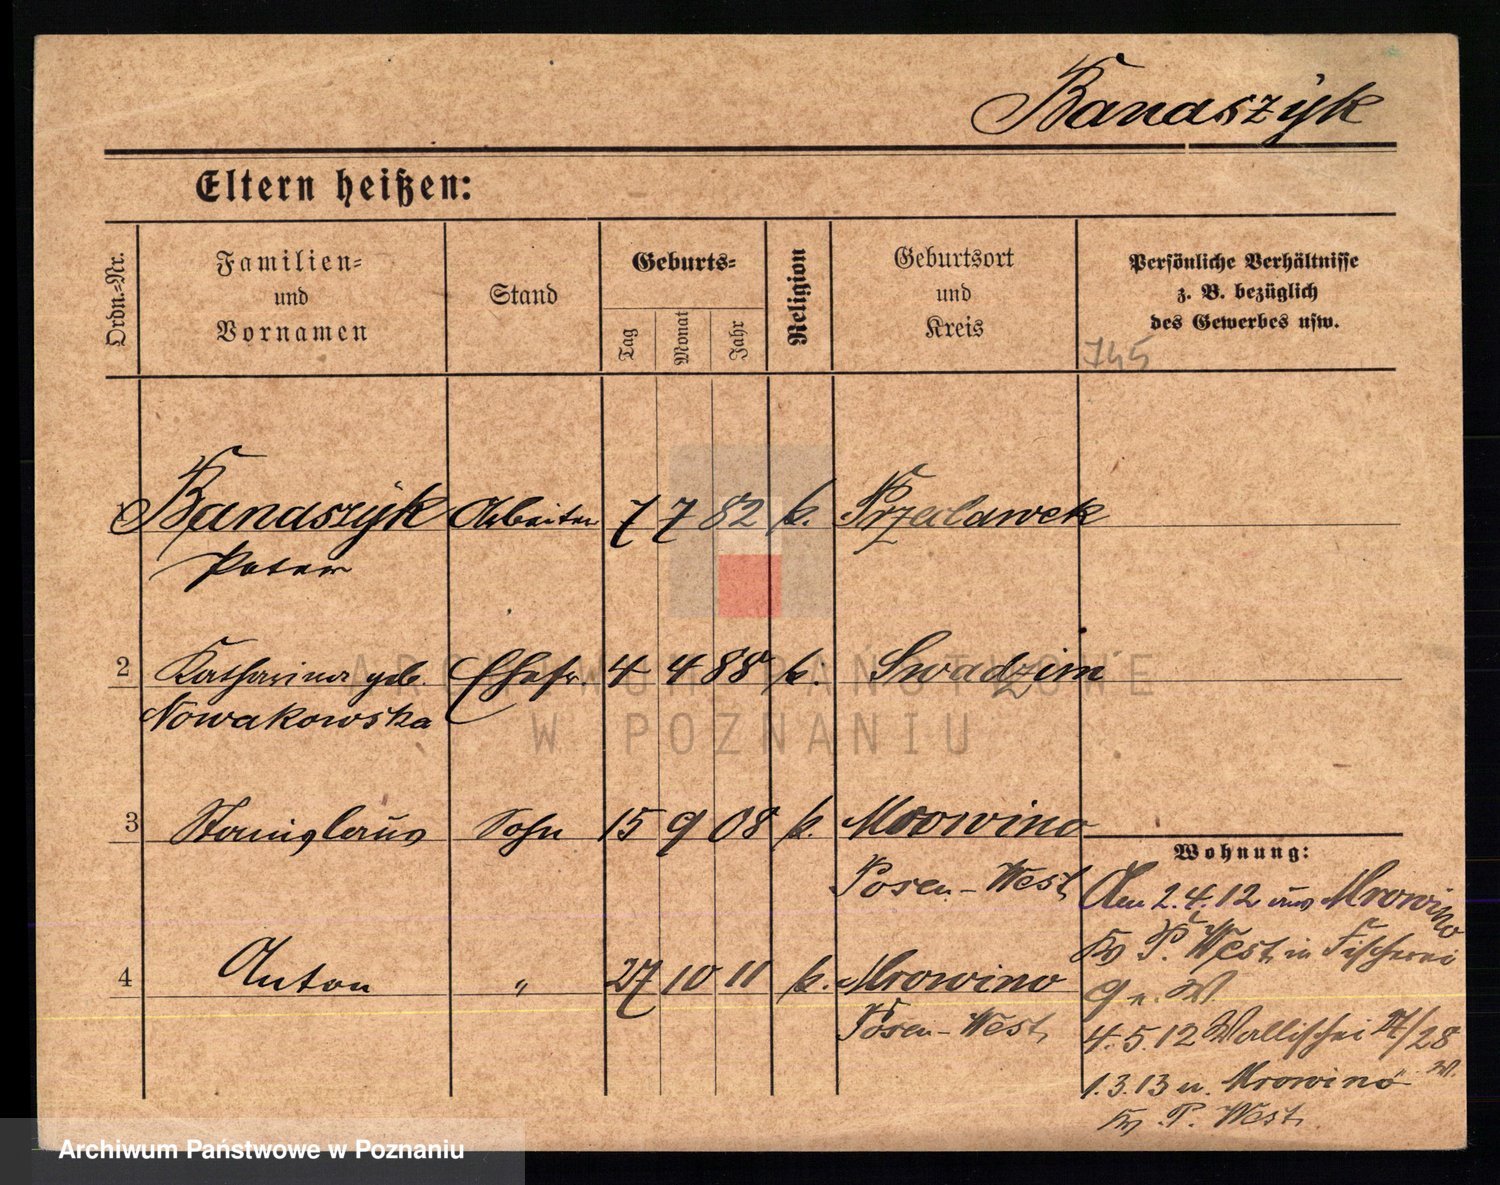 Banaszyk
Eltern heißen:
Ordn.-Nr.
Familien-
und
Vornamen
Stand
Geburts-
Tag
Monat
Jahr
Religion
Geburtsort
und
Kreis
Persönliche Verhältnisse
z. B. bezüglich
des Gewerbes usw.
745
1 Banaszyk Arbeiter 7 7 82 k. Przeclawek
Peter
2 Katharina geb. Ehefr. 4 4 88 k. Swadzim
Nowakowska
3 Stanislaus Sohn 15 9 08 k. Mrowino
Posen-West
4 Anton " 27 10 11 k. Mrowino
Posen-West
Wohnung:
Am 2.4.12 aus Mrowino
Kr. P. West in Fischerei
9 n. W
4.5.12 Wallischei 27/28
W.
1.3.13 n. Mrowino
Kr. P. West
ARCHIWUM PAŃSTWOWE
W POZNANIU
Archiwum Państwowe w Poznaniu